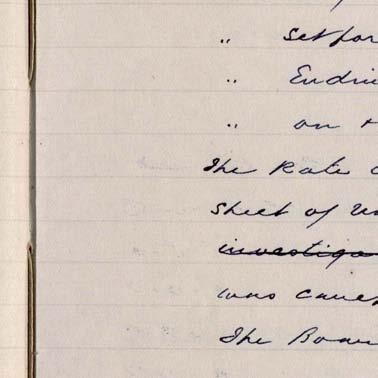 " Set for
" Endin
" on t
The Rate
Sheet of
investiga
was cause
The Boar